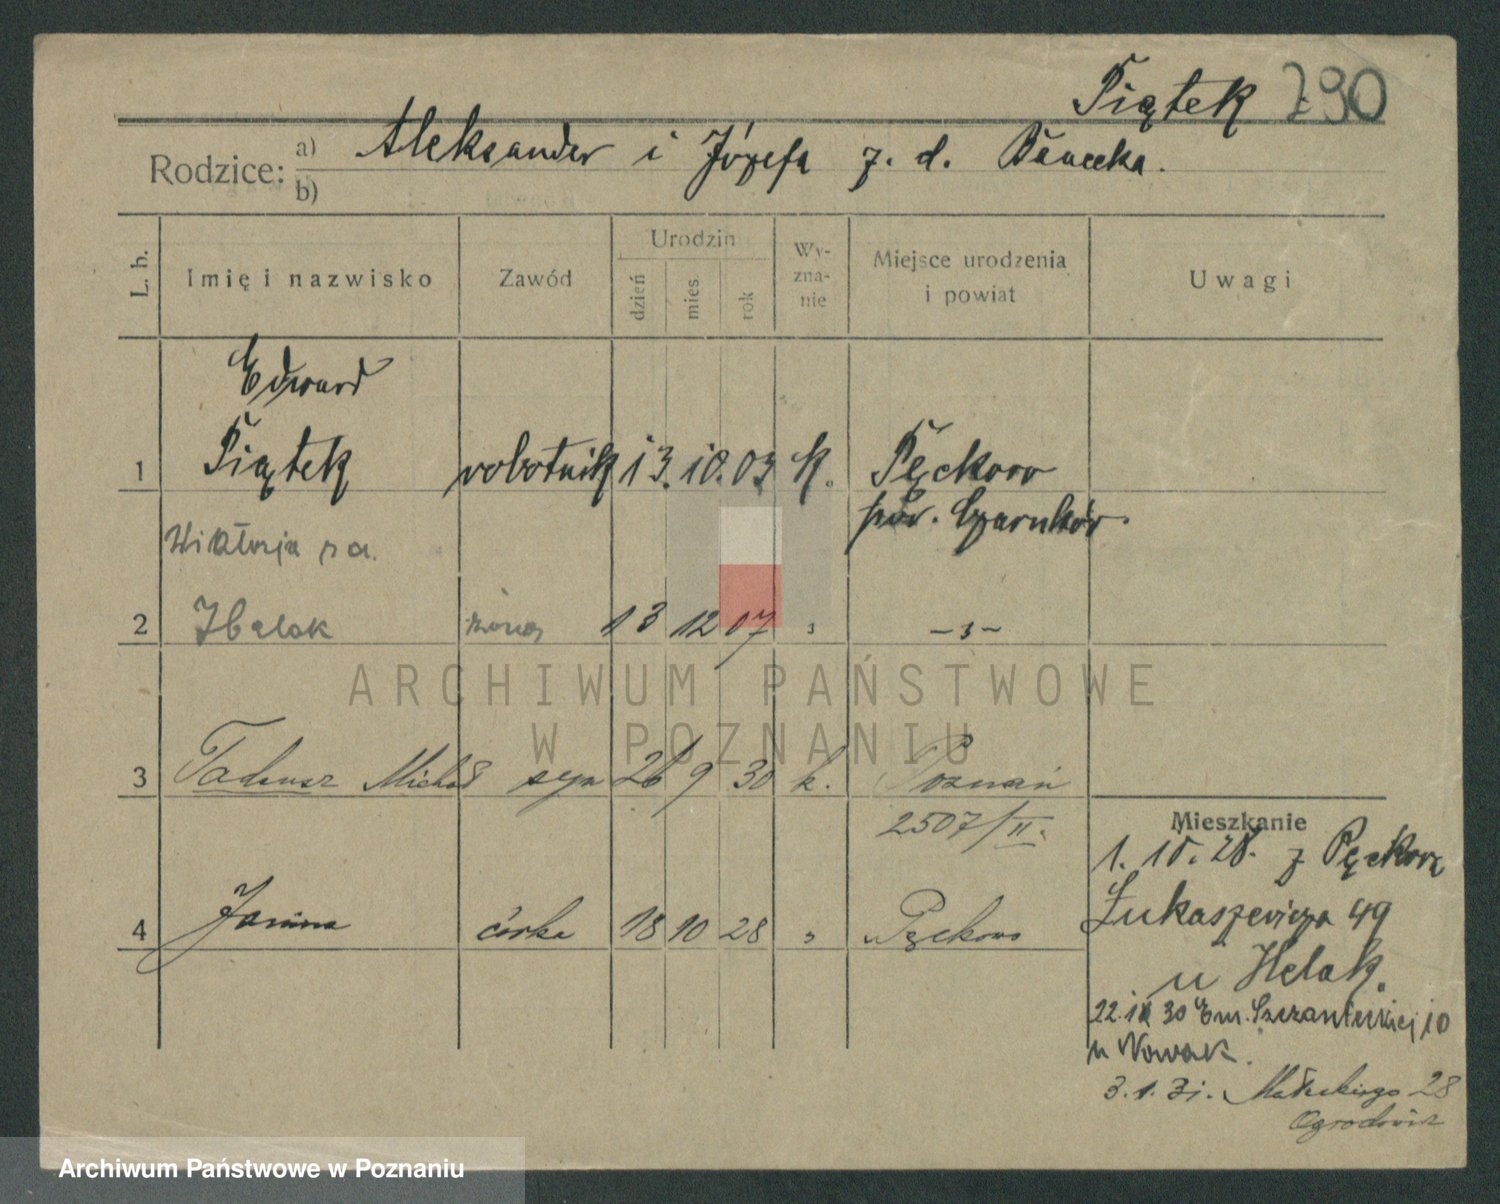 Piątek 790
Rodzice: a) Aleksander i Józefa z. d. Banecka.
b)
L. b.
Imię i nazwisko
Zawód
Urodzin
dzień
mies.
rok
Wy-
zna-
nie
Miejsce urodzenia
i powiat
Uwagi
Edward
1 Piątek robotnik 13. 10. 03 K. Pęckowo
pow. Czarnków.
Wiktorja z d.
2 Helak żona 13 12 07 „ – „ –
3 Tadeusz Michał syn 26 9 30 k. Poznań
2507/II.
4 Janina córka 18 10 28 „ Pęckowo
Mieszkanie
1. 10. 28. z Pęckowa
Łukaszewicza 49
u Helak.
22. 30 Em. Szczanieckiej 10
u Nowak.
3. 1. 31. Małeckiego 28
ARCHIWUM PAŃSTWOWE
W POZNANIU
Archiwum Państwowe w Poznaniu